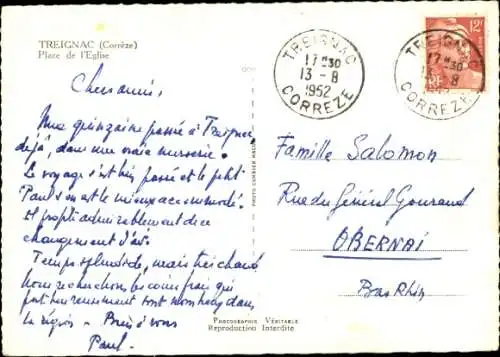 TREIGNAC (Corrèze)
Place de l'Eglise
Chers amis,
Une quinzaine passée à Treignac,
déjà, dans une vraie
Le voyage s'est bien passé et le petit
Paul s'en est le mieux accommodé.
Il profite admirablement de ce
changement d'air.
Temps splendide, mais très chaud.
Nous recherchons les coins frais qui
fort heureusement sont nombreux dans
la région - Bien à vous
Paul.
TREIGNAC
17H30
13-8
1952
CORREZE
TREIGNAC
17H30
13-8
1952
CORREZE
12F
RF
Famille Salomon
Rue du Général Gouraud
OBERNAI
Bas Rhin
PHOTOGRAPHIE VÉRITABLE
Reproduction Interdite